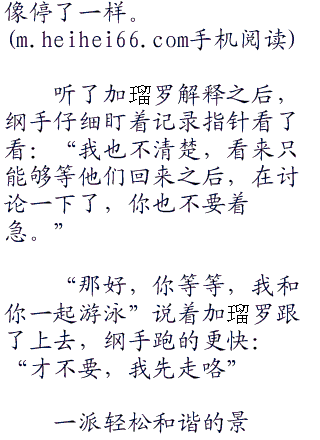 像停了一样。
(m.heihei66.com手机阅读)
听了加瑠罗解释之后，
纲手仔细盯着记录指针看了
看：“我也不清楚，看来只
能够等他们回来之后，在讨
论一下了，你也不要着
急。”
“那好，你等等，我和
你一起游泳”说着加瑠罗跟
了上去，纲手跑的更快：
“才不要，我先走咯”
一派轻松和谐的景